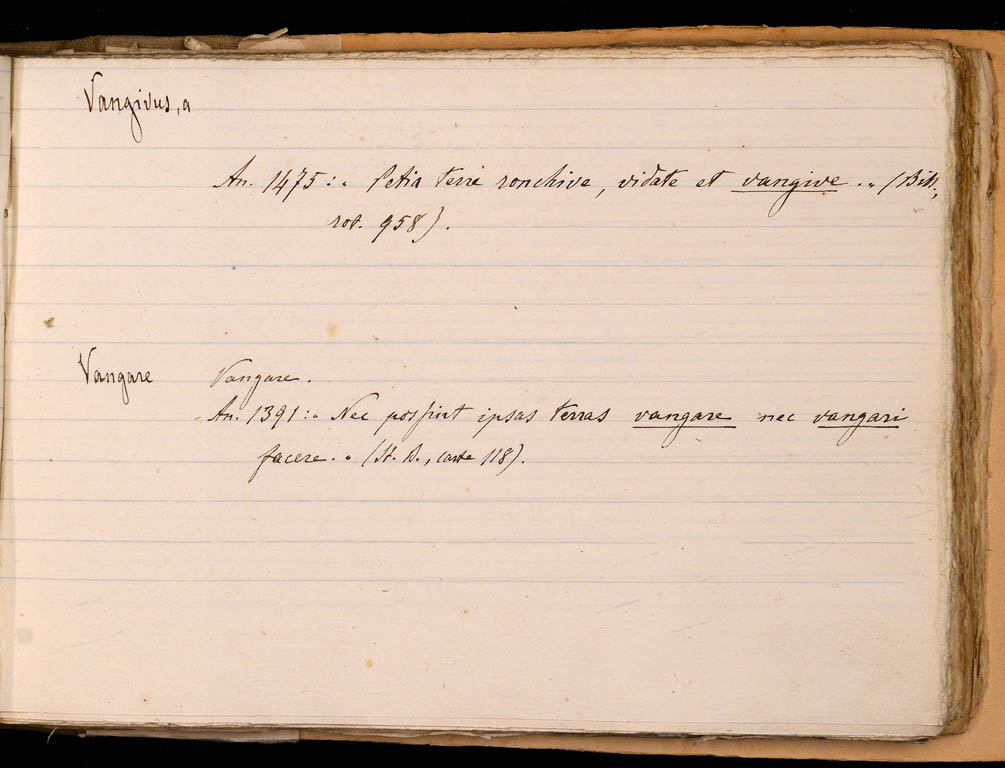 Vangivus, a
An. 1475: " Petia terre ronchive, vidate et vangive. " (Bibl.,
rot. 958).
Vangare Vangare.
An. 1391: " Nec possint ipsas terras vangare nec vangari
facere. " (St. B., carte 118).